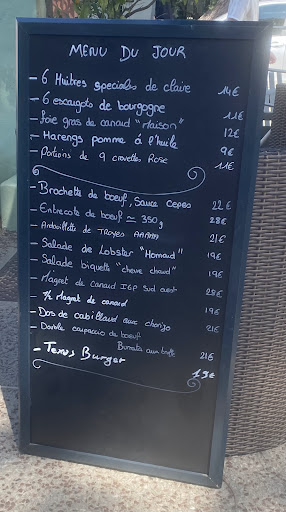 MENU DU JOUR
- 6 Huitres speciales de claire 14€
- 6 escargots de bourgogne 11€
- Foie gras de canard "Maison" 12€
- Harengs pomme à l'huile 9€
- Portions de 9 crevettes Rose 11€
- Brochette de boeuf, Sauce Cepes 22€
- Entrecote de boeuf ≃ 350g 28€
- Andouillette de TROYES AAAAA 21€
- Salade de Lobster "Homard" 19€
- Salade biquette "chevre chaud" 19€
- Magret de canard IGP Sud ouest 28€
- ½ Magret de canard 19€
- Dos de cabillaud aux chorizo 21€
- Double carpaccio de boeuf
Burrata aux truffe 21€
- Texas Burger 19€